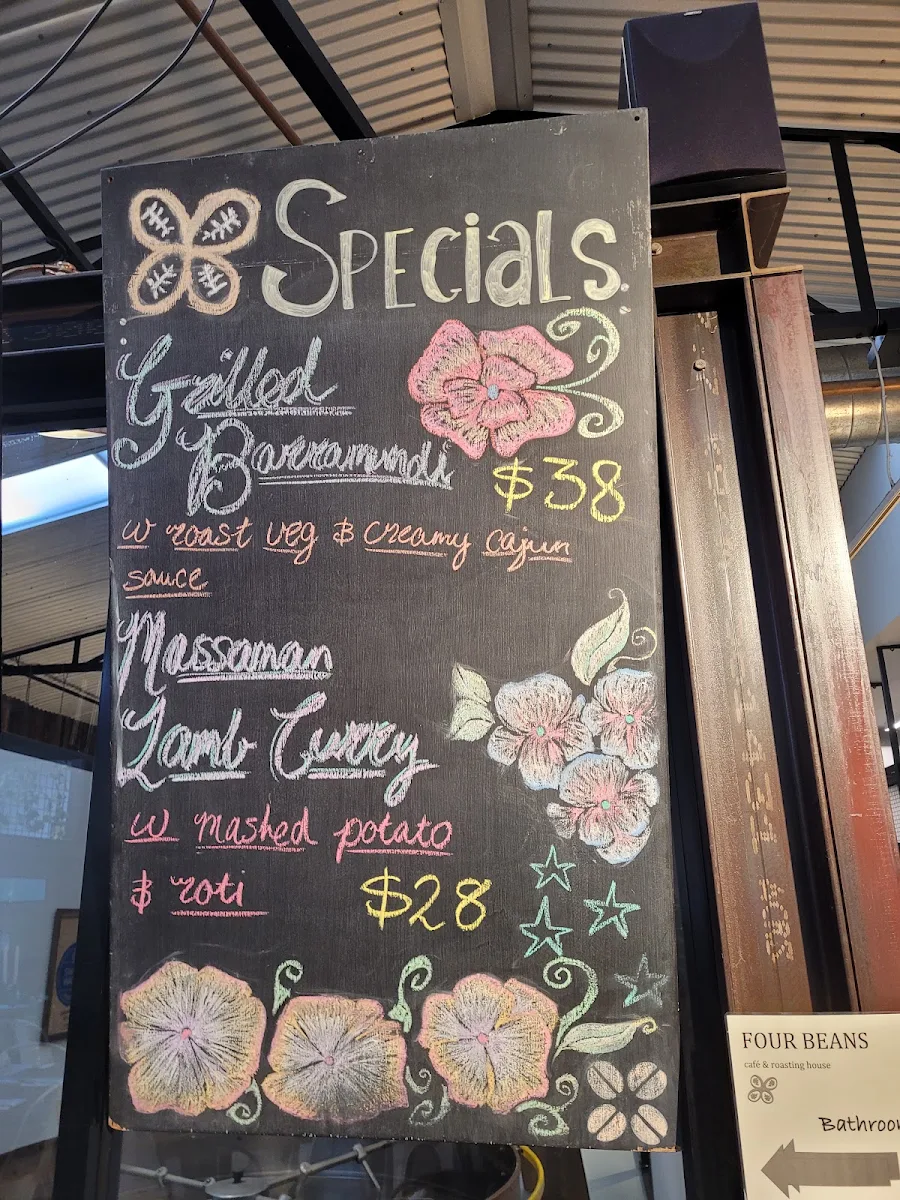 Specials
Grilled
Barramundi
$38
w roast veg & creamy cajun
sauce
Massaman
Lamb Curry
w mashed potato
& roti $28
FOUR BEANS
café & roasting house